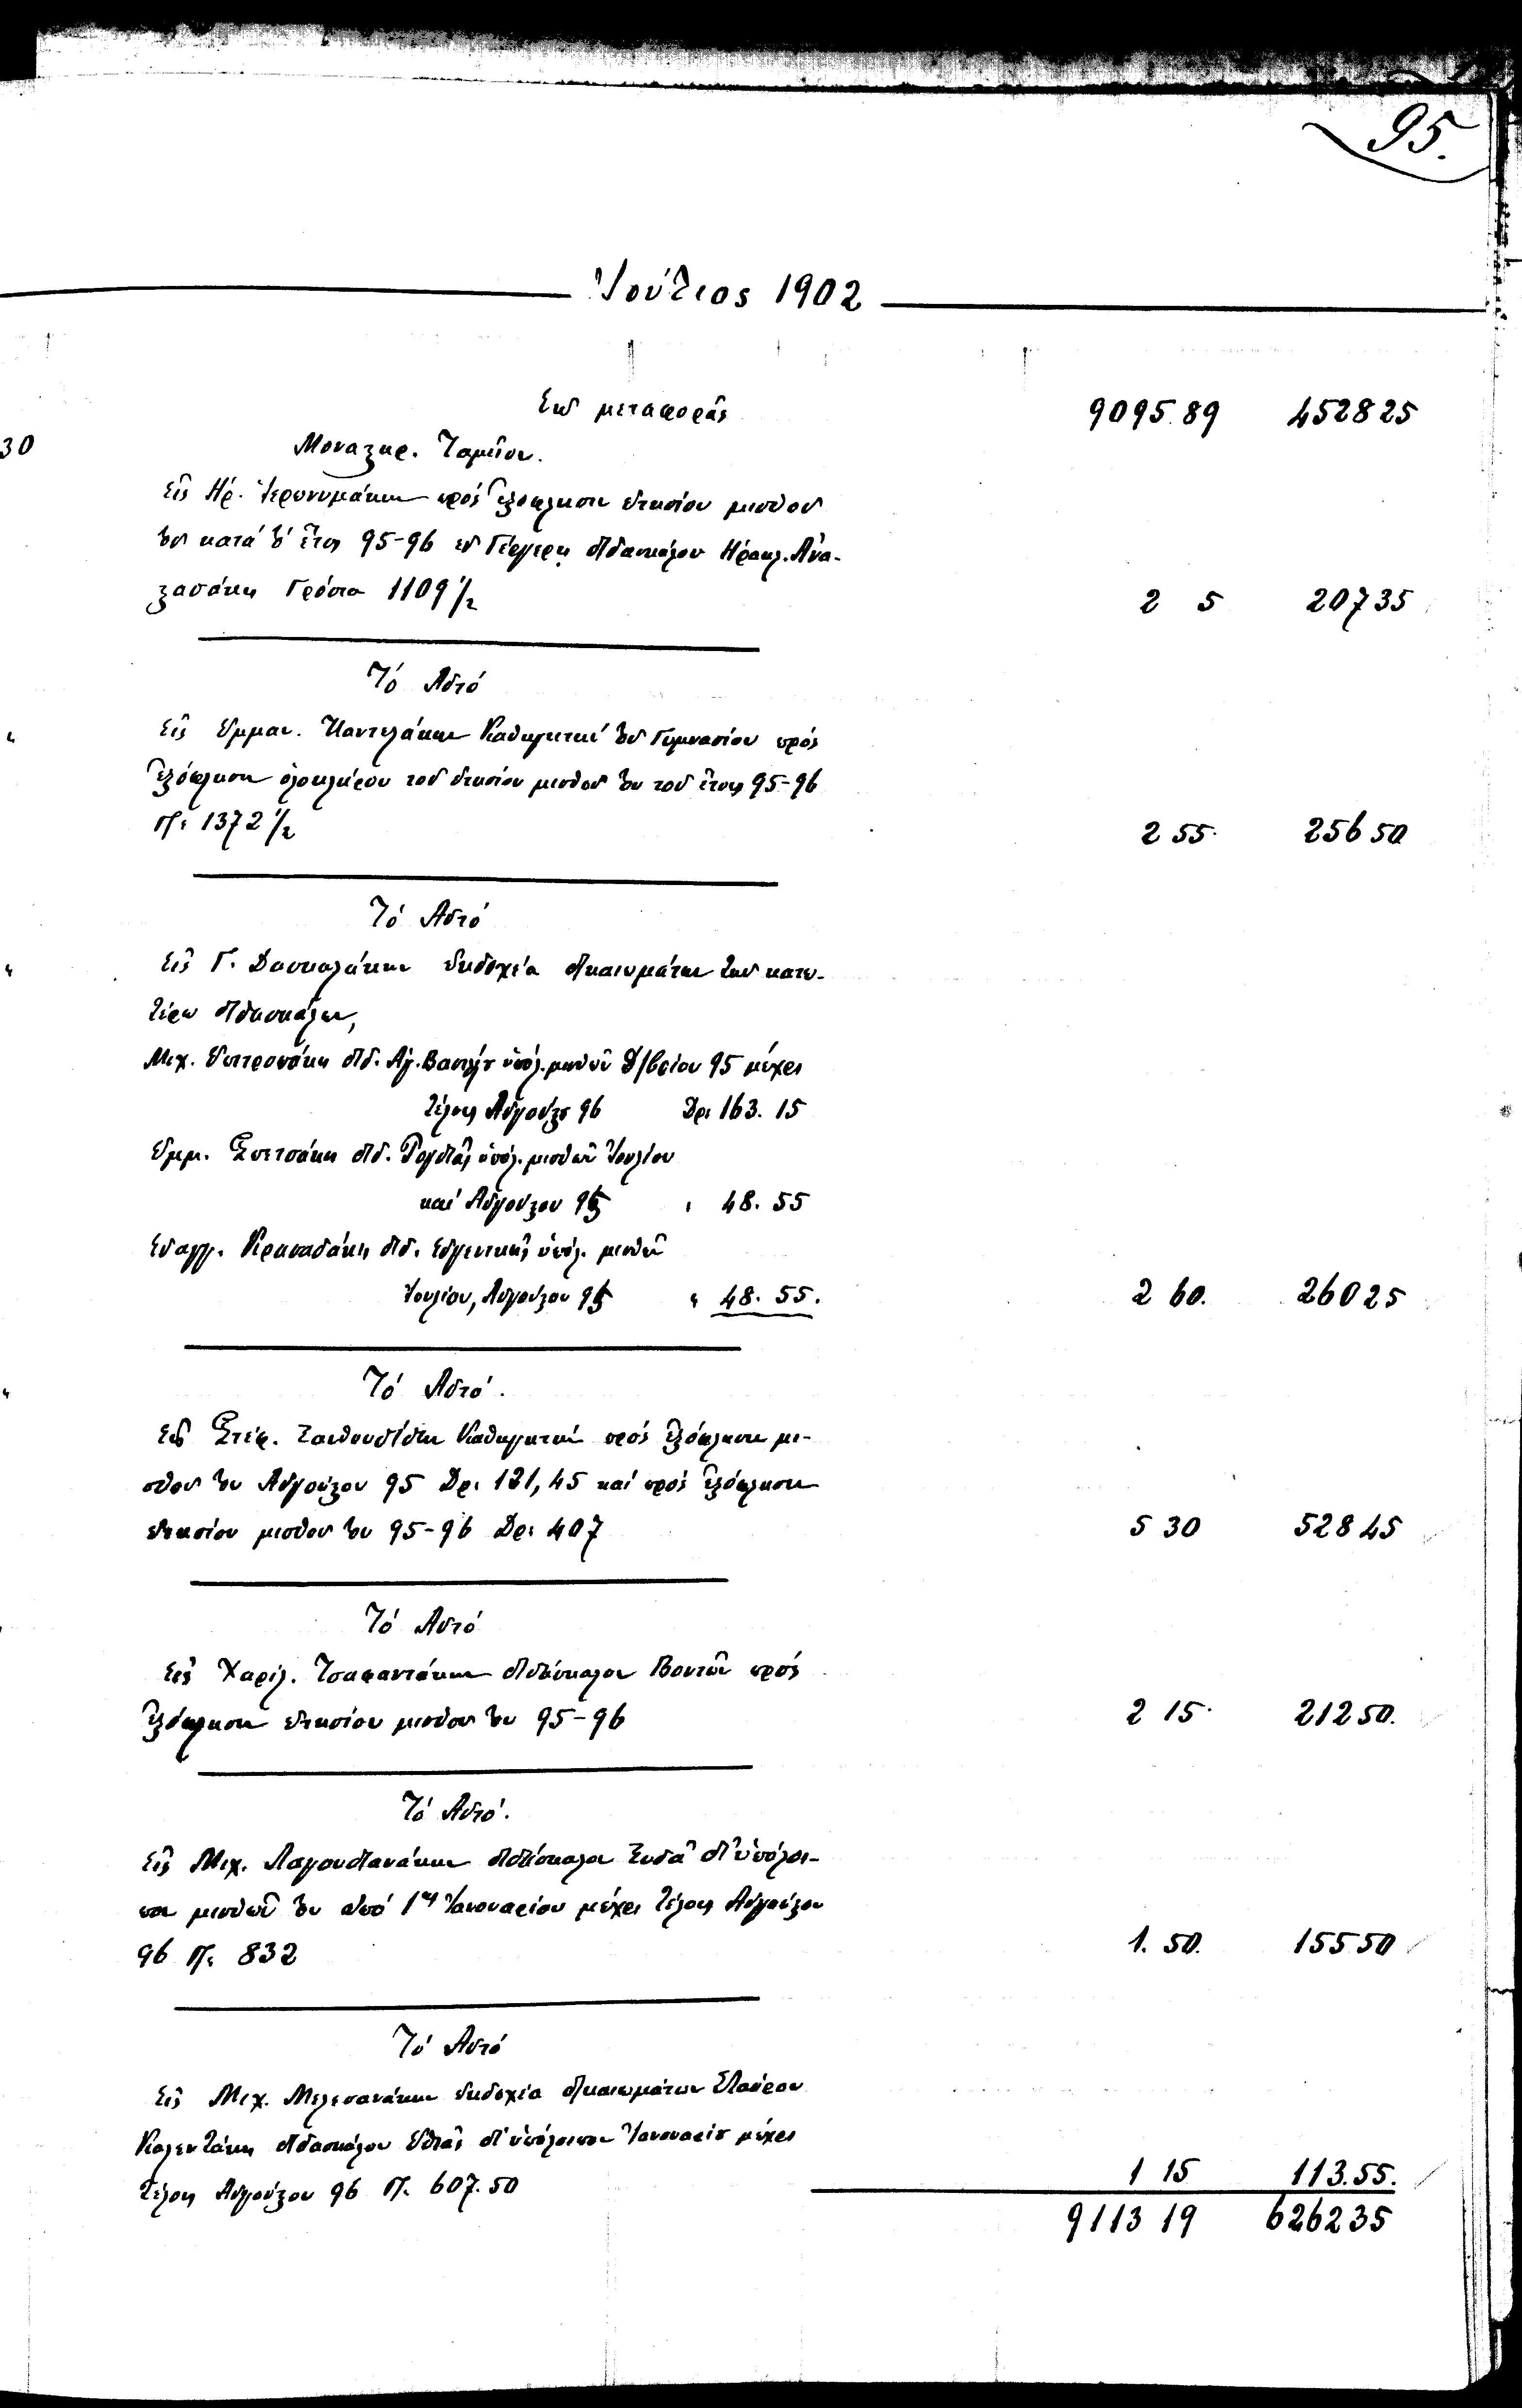 95.
Ἰούνιος 1902
Ἐκ μεταφορᾶς 9095.89 4528 25
30 Μοναστηρ. Ταμεῖον.
Εἰς Ἡρ. Ἱερωνυμάκην πρὸς ἐξόφλησιν ἐτησίου μισθοῦ
του κατὰ τὸ ἔτος 95-96 ἐν Γέργερη διδασκάλου Ἡρακλ.
Γρόσια 1109 1/2 2 5 207 35
Τὸ Αὐτό
Εἰς Ἐμμαν. Παντελάκην Καθηγητὴν τοῦ Γυμνασίου πρὸς
ἐξόφλησιν ὁλοκλήρου τοῦ ἐτησίου μισθοῦ του τοῦ ἔτους 95-96
Γρ: 1372 1/2 2 55 256 50
Τὸ Αὐτό
Εἰς Γ. Δασκαλάκην ἐκδοχέα δικαιωμάτων τῶν κατω-
τέρω διδασκάλων,
Μιχ. διδ. Ἁγ. ὑπόλ. μισθῶν 8/βρίου 95 μέχρι
τέλους Αὐγούστ 96 Δρ: 163. 15
Ἐμμ. διδ. Ῥογδιᾶς ὑπόλ. μισθῶν Ἰουλίου
καὶ Αὐγούστου 95 " 48. 55
Εὐαγγ. διδ. ὑπόλ. μισθῶν
Ἰουλίου, Αὐγούστου 95 " 48. 55. 2 60. 260 25
Τὸ Αὐτό.
Εἰς Στέφ. Ξανθουδίδην Καθηγητὴν πρὸς ἐξόφλησιν μι-
σθοῦ του Αὐγούστου 95 Δρ. 121,45 καὶ πρὸς ἐξόφλησιν
ἐτησίου μισθοῦ του 95-96 Δρ: 407 5 30 528 45
Τὸ Αὐτό
Εἰς Χαρίλ. Τσαφαντάκην διδάσκαλον Βουτῶν πρὸς
ἐξόφλησιν ἐτησίου μισθοῦ του 95-96 2 15. 212 50.
Τὸ Αὐτό.
Εἰς Μιχ. Λαγουδιανάκην διδάσκαλον δι' ὑπόλοι-
πον μισθῶν του ἀπὸ 1ης Ἰανουαρίου μέχρι τέλους Αὐγούστου
96 Γρ. 832 1. 50. 155 50
Τὸ Αὐτό
Εἰς Μιχ. Μελισσανάκην ἐκδοχέα δικαιωμάτων Σταύρου
διδασκάλου δι' ὑπόλοιπον Ἰανουαρίου μέχρι
τέλους Αὐγούστου 96 Γρ. 607.50 1 15 113.55.
9113 19 6262 35